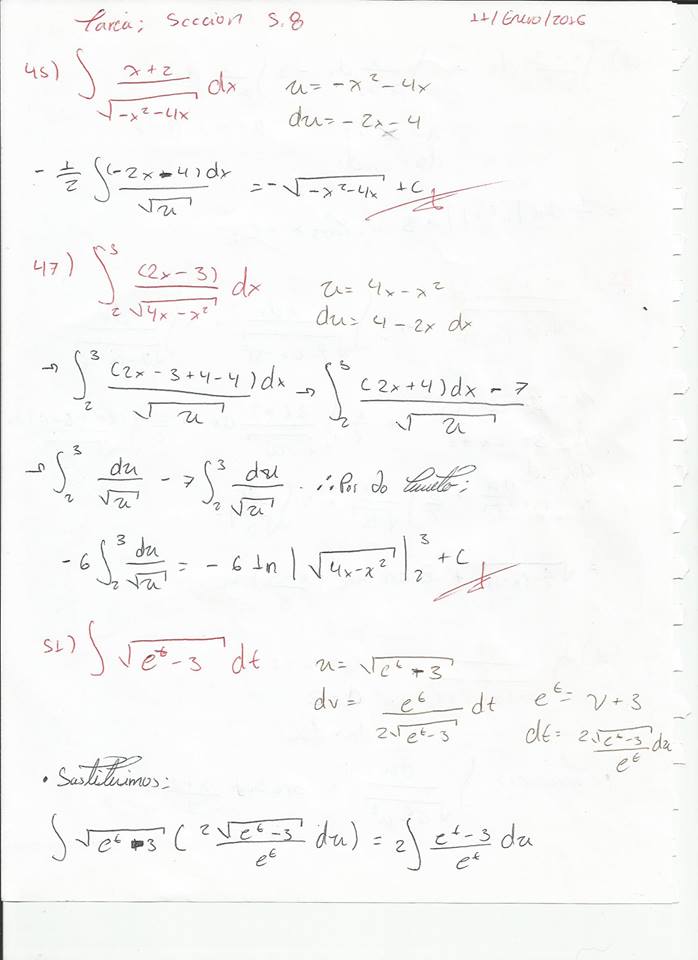 Tarea; Sección 5.8 11/Enero/2016
45) ∫ x+2/√(-x²-4x) dx u = -x²-4x
du = -2x-4
-1/2 ∫ (-2x-4)dx/√u = -√(-x²-4x) + C
47) ∫₂³ (2x-3)/√(4x-x²) dx u = 4x-x²
du = 4-2x dx
→ ∫₂³ (2x-3+4-4)dx/√u → ∫₂³ (2x+4)dx-7/√u
→ ∫₂³ du/√u - 7 ∫₂³ du/√u ∴ Por lo tanto;
-6 ∫₂³ du/√u = -6 ln|√(4x-x²)|₂³ + C
51) ∫ √(eᵗ-3) dt u = √(eᵗ-3)
dv = eᵗ/2√(eᵗ-3) dt eᵗ = v+3
dt = 2√(eᵗ-3)/eᵗ du
• Sustituimos:
∫ √(eᵗ-3) (2√(eᵗ-3)/eᵗ du) = 2∫ eᵗ-3/eᵗ du